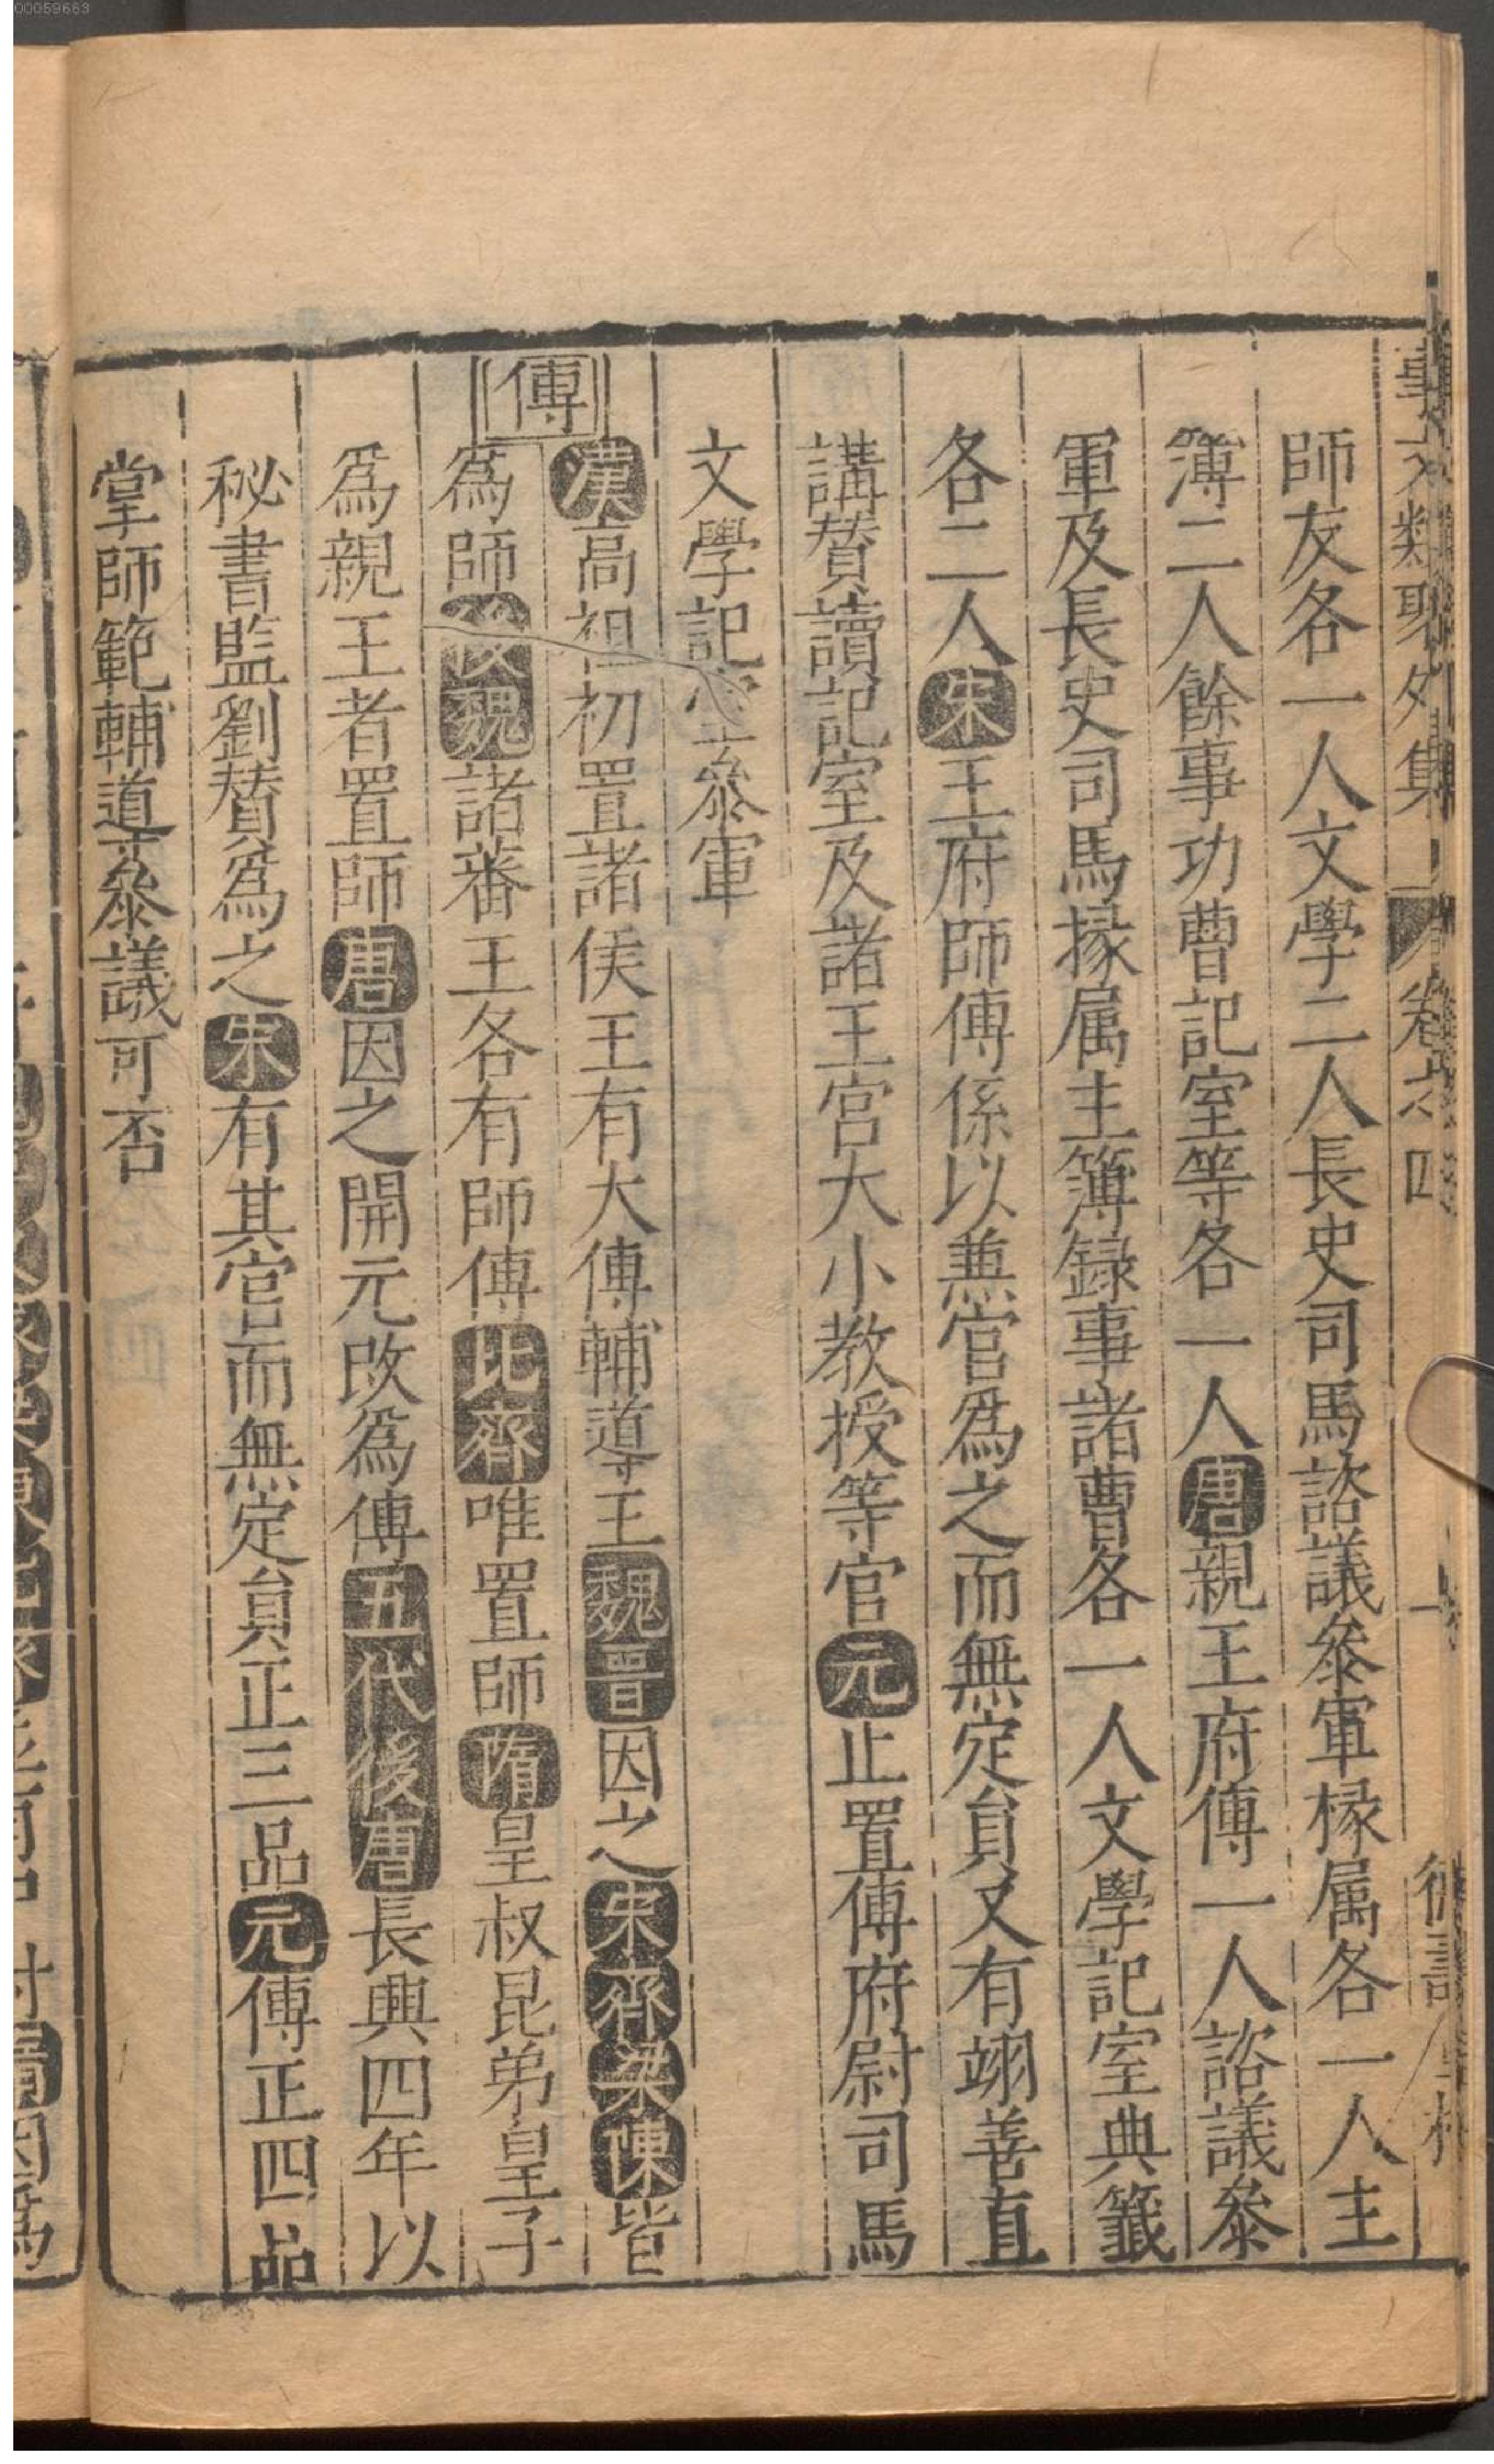 00059663
師友各一人文學二人長史司馬諮議叅軍掾属各一人主
簿二人餘事功曹記室等各一人唐親王府傅一人諮議叅
軍及長史司馬掾属主簿録事諸曹各一人文學記室典籖
各二人宋王府師傅係以兼官爲之而無定員又有翊善直
講賛讀記室及諸王宮大小教授等官元止置傅府尉司馬
文學記室叅軍
傅
漢高祖初置諸侯王有大傅輔導王魏晉因之宋齊梁陳皆
爲師後魏諸蕃王各有師傅北齊唯置師隋皇叔昆弟皇子
爲親王者置師唐因之開元改爲傅五代後唐長興四年以
秘書監劉賛爲之宋有其官而無定員正三品元傅正四品
掌師範輔導叅議可否